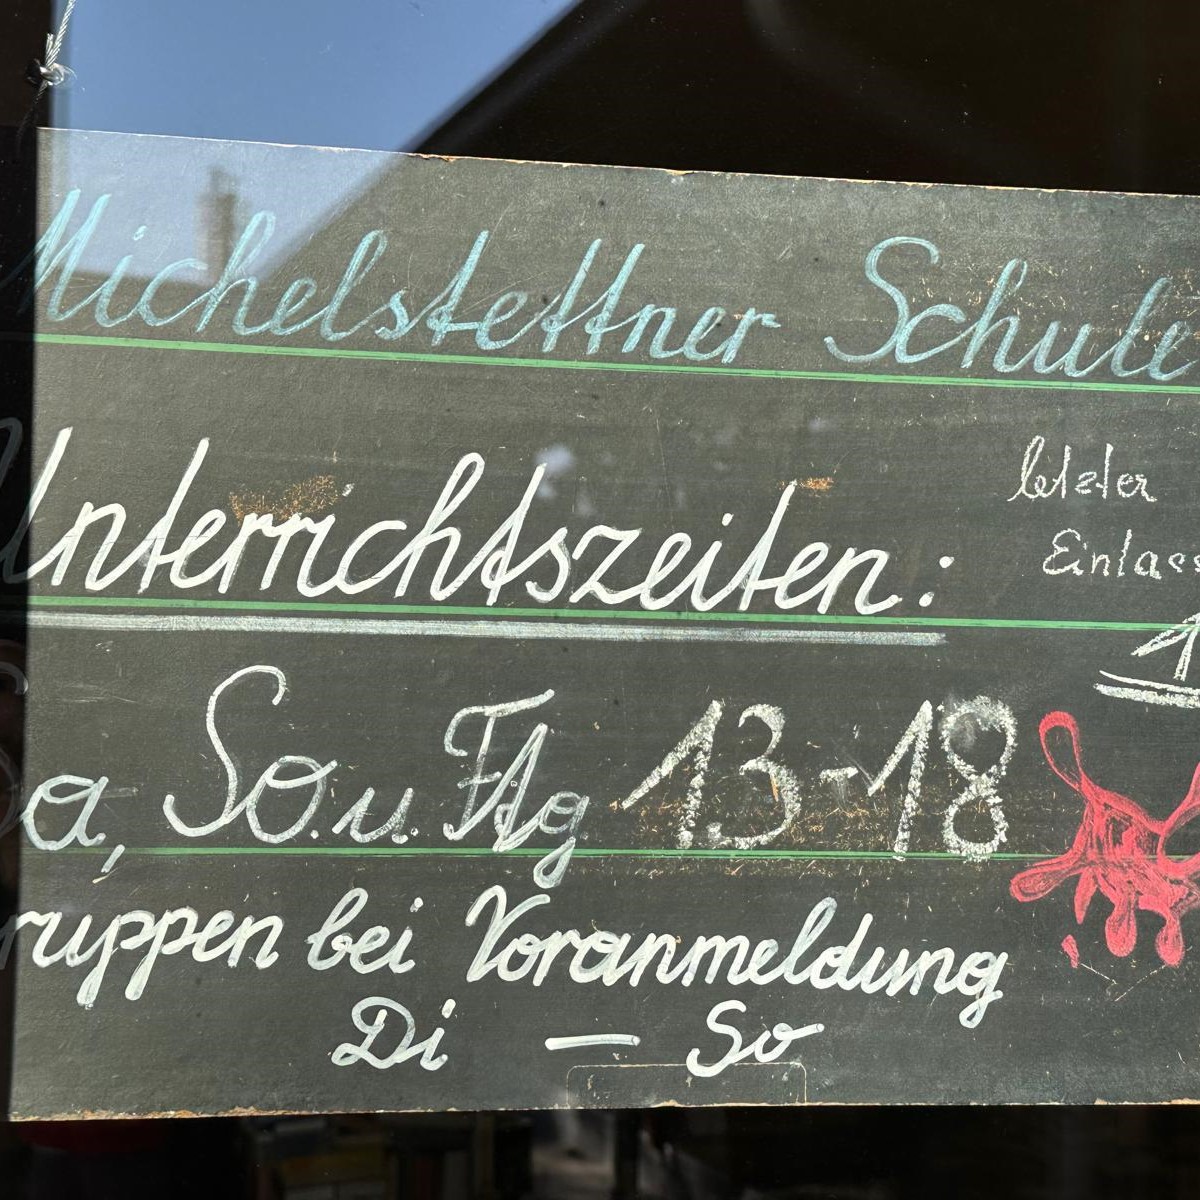 Michelstettner Schule
Unterrichtszeiten:
letzter
Einlass
Sa, So. u. Ftg 13-18
Gruppen bei Voranmeldung
Di — So